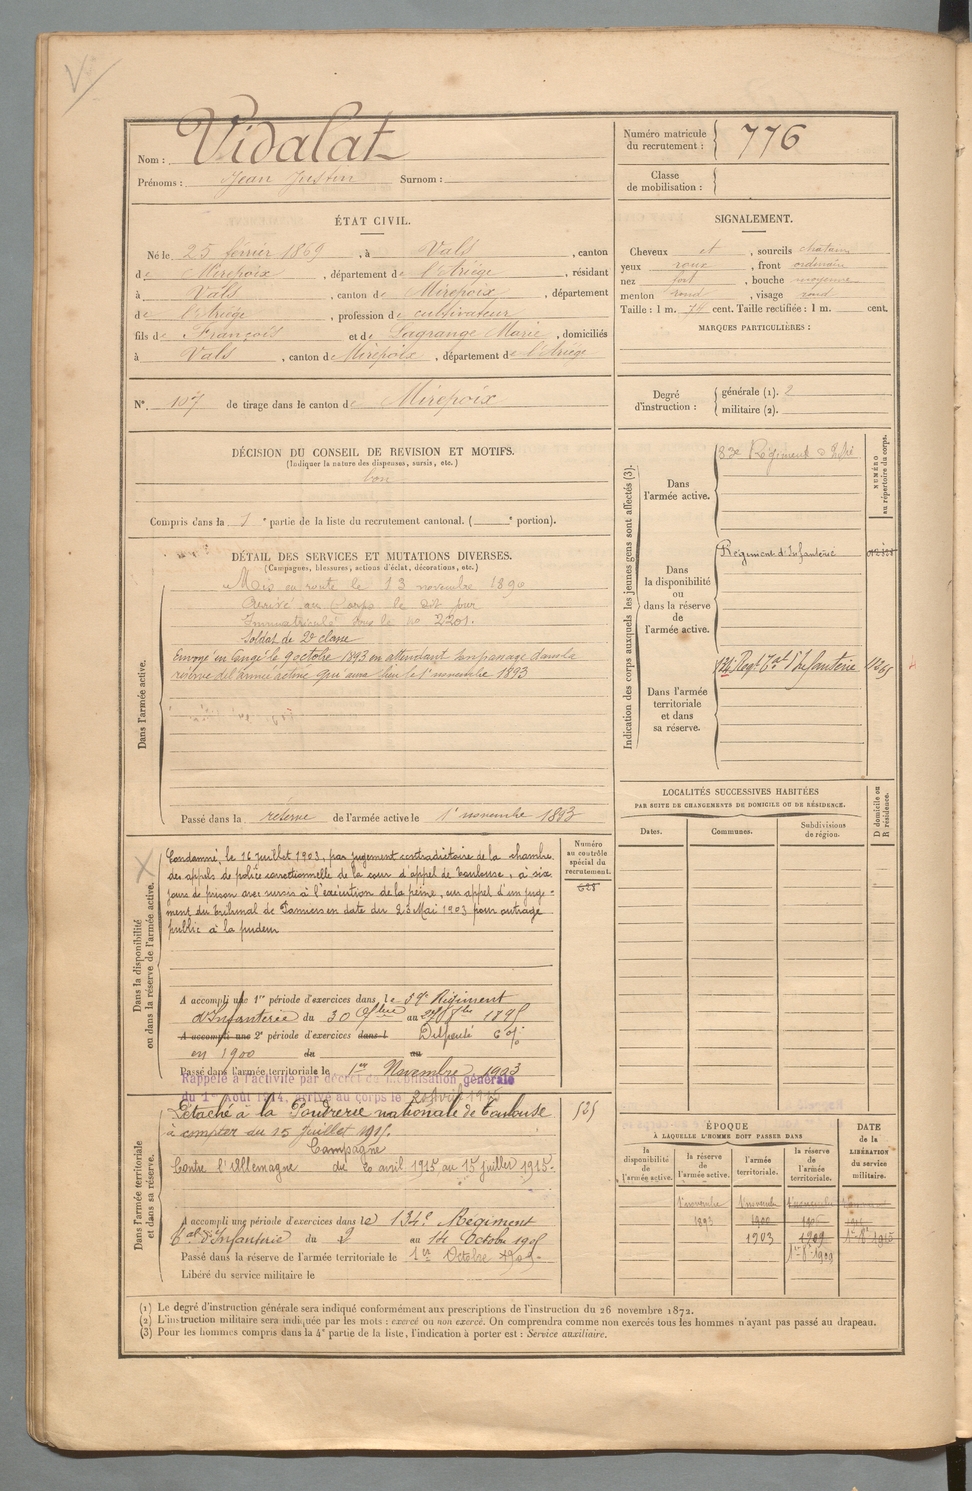 Nom : Vidalat
Prénoms : Jean Justin Surnom :
Numéro matricule du recrutement : 776
Classe de mobilisation :
ÉTAT CIVIL.
Né le 25 février 1869, à Vals, canton
de Mirepoix, département de l'Ariège, résidant
à Vals, canton de Mirepoix, département
de l'Ariège, profession de cultivateur
fils de François et de Lagrange Marie, domiciliés
à Vals, canton de Mirepoix, département de l'Ariège
SIGNALEMENT.
Cheveux et, sourcils chatains
yeux roux, front ordinaire
nez fort, bouche moyenne
menton rond, visage rond
Taille : 1 m. 74 cent. Taille rectifiée : 1 m. cent.
MARQUES PARTICULIÈRES :
N° 107 de tirage dans le canton de Mirepoix
Degré d'instruction : générale (1). 2
militaire (2).
DÉCISION DU CONSEIL DE REVISION ET MOTIFS.
(Indiquer la nature des dispenses, sursis, etc.)
bon
Compris dans la 1e partie de la liste du recrutement cantonal. ( e portion).
DÉTAIL DES SERVICES ET MUTATIONS DIVERSES.
(Campagnes, blessures, actions d'éclat, décorations, etc.)
Dans l'armée active.
Mis en route le 13 novembre 1890
Arrivé au Corps le dit jour
Immatriculé sous le no 2201.
Soldat de 2e classe
Envoyé en congé le 9 octobre 1893 en attendant son passage dans la
réserve de l'armée active qui aura lieu le 1er novembre 1893
Passé dans la réserve de l'armée active le 1er novembre 1893
Indication des corps auxquels les jeunes gens sont affectés (3).
NUMÉRO au répertoire du corps.
Dans l'armée active.
83e Régiment d'Infrie
Dans la disponibilité ou dans la réserve de l'armée active.
Régiment d'Infanterie
Dans l'armée territoriale et dans sa réserve.
134e Regt Tal d'Infanterie
LOCALITÉS SUCCESSIVES HABITÉES
PAR SUITE DE CHANGEMENTS DE DOMICILE OU DE RÉSIDENCE.
Dates. Communes. Subdivisions de région. D domicile ou R résidence.
Dans la disponibilité ou dans la réserve de l'armée active.
Numéro au contrôle spécial du recrutement.
628
Condamné, le 16 juillet 1903, par jugement contradictoire de la chambre
des appels de police correctionnelle de la cour d'appel de Toulouse, à six
jours de prison avec sursis à l'exécution de la peine, sur appel d'un juge-
ment du tribunal de Pamiers en date du 23 Mai 1903 pour outrage
public à la pudeur
A accompli une 1re période d'exercices dans le 59e Régiment
d'Infanterie du 30 au 1895
A accompli une 2e période d'exercices dans l Dispensé
en 1900 du au
Passé dans l'armée territoriale le 1er Novembre 1903
Rappelé à l'activité par décret de mobilisation générale
du 1er Août 1914, arrivé au corps le 2 avril 1915
Dans l'armée territoriale et dans sa réserve.
Détaché à la Poudrerie nationale de Toulouse
à compter du 15 Juillet 1915.
525
Campagne
Contre l'Allemagne du 2 avril 1915 au 15 juillet 1915.
A accompli une période d'exercices dans le 134e Régiment
Tal d'Infanterie du 2 au 14 Octobre 1905
Passé dans la réserve de l'armée territoriale le 1er Octobre 1909.
Libéré du service militaire le
ÉPOQUE
À LAQUELLE L'HOMME DOIT PASSER DANS
DATE de la LIBÉRATION du service militaire.
la disponibilité de l'armée active. la réserve de l'armée active. l'armée territoriale. la réserve de l'armée territoriale.
1 novembre 1 novembre 1 novembre
1893 1900
1903 1909 1915
1909
(1) Le degré d'instruction générale sera indiqué conformément aux prescriptions de l'instruction du 26 novembre 1872.
(2) L'instruction militaire sera indiquée par les mots : exercé ou non exercé. On comprendra comme non exercés tous les hommes n'ayant pas passé au drapeau.
(3) Pour les hommes compris dans la 4e partie de la liste, l'indication à porter est : Service auxiliaire.